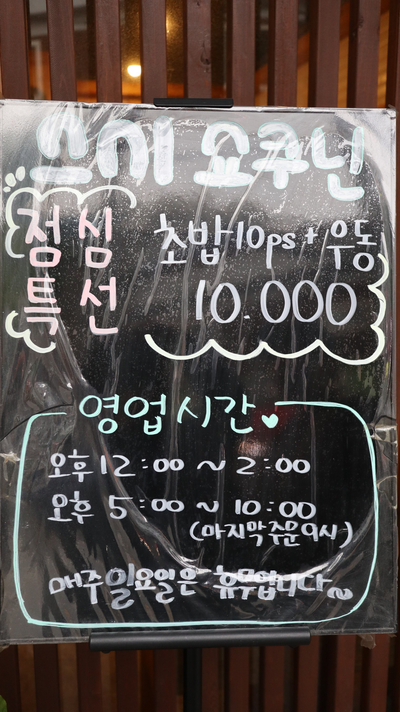 스끼 쇼쿠닌
점심
특선
초밥10ps + 우동
10.000
영업시간
오후 12:00 ~ 2:00
오후 5:00 ~ 10:00
(마지막주문 9시)
매주 일요일은 휴무입니다~